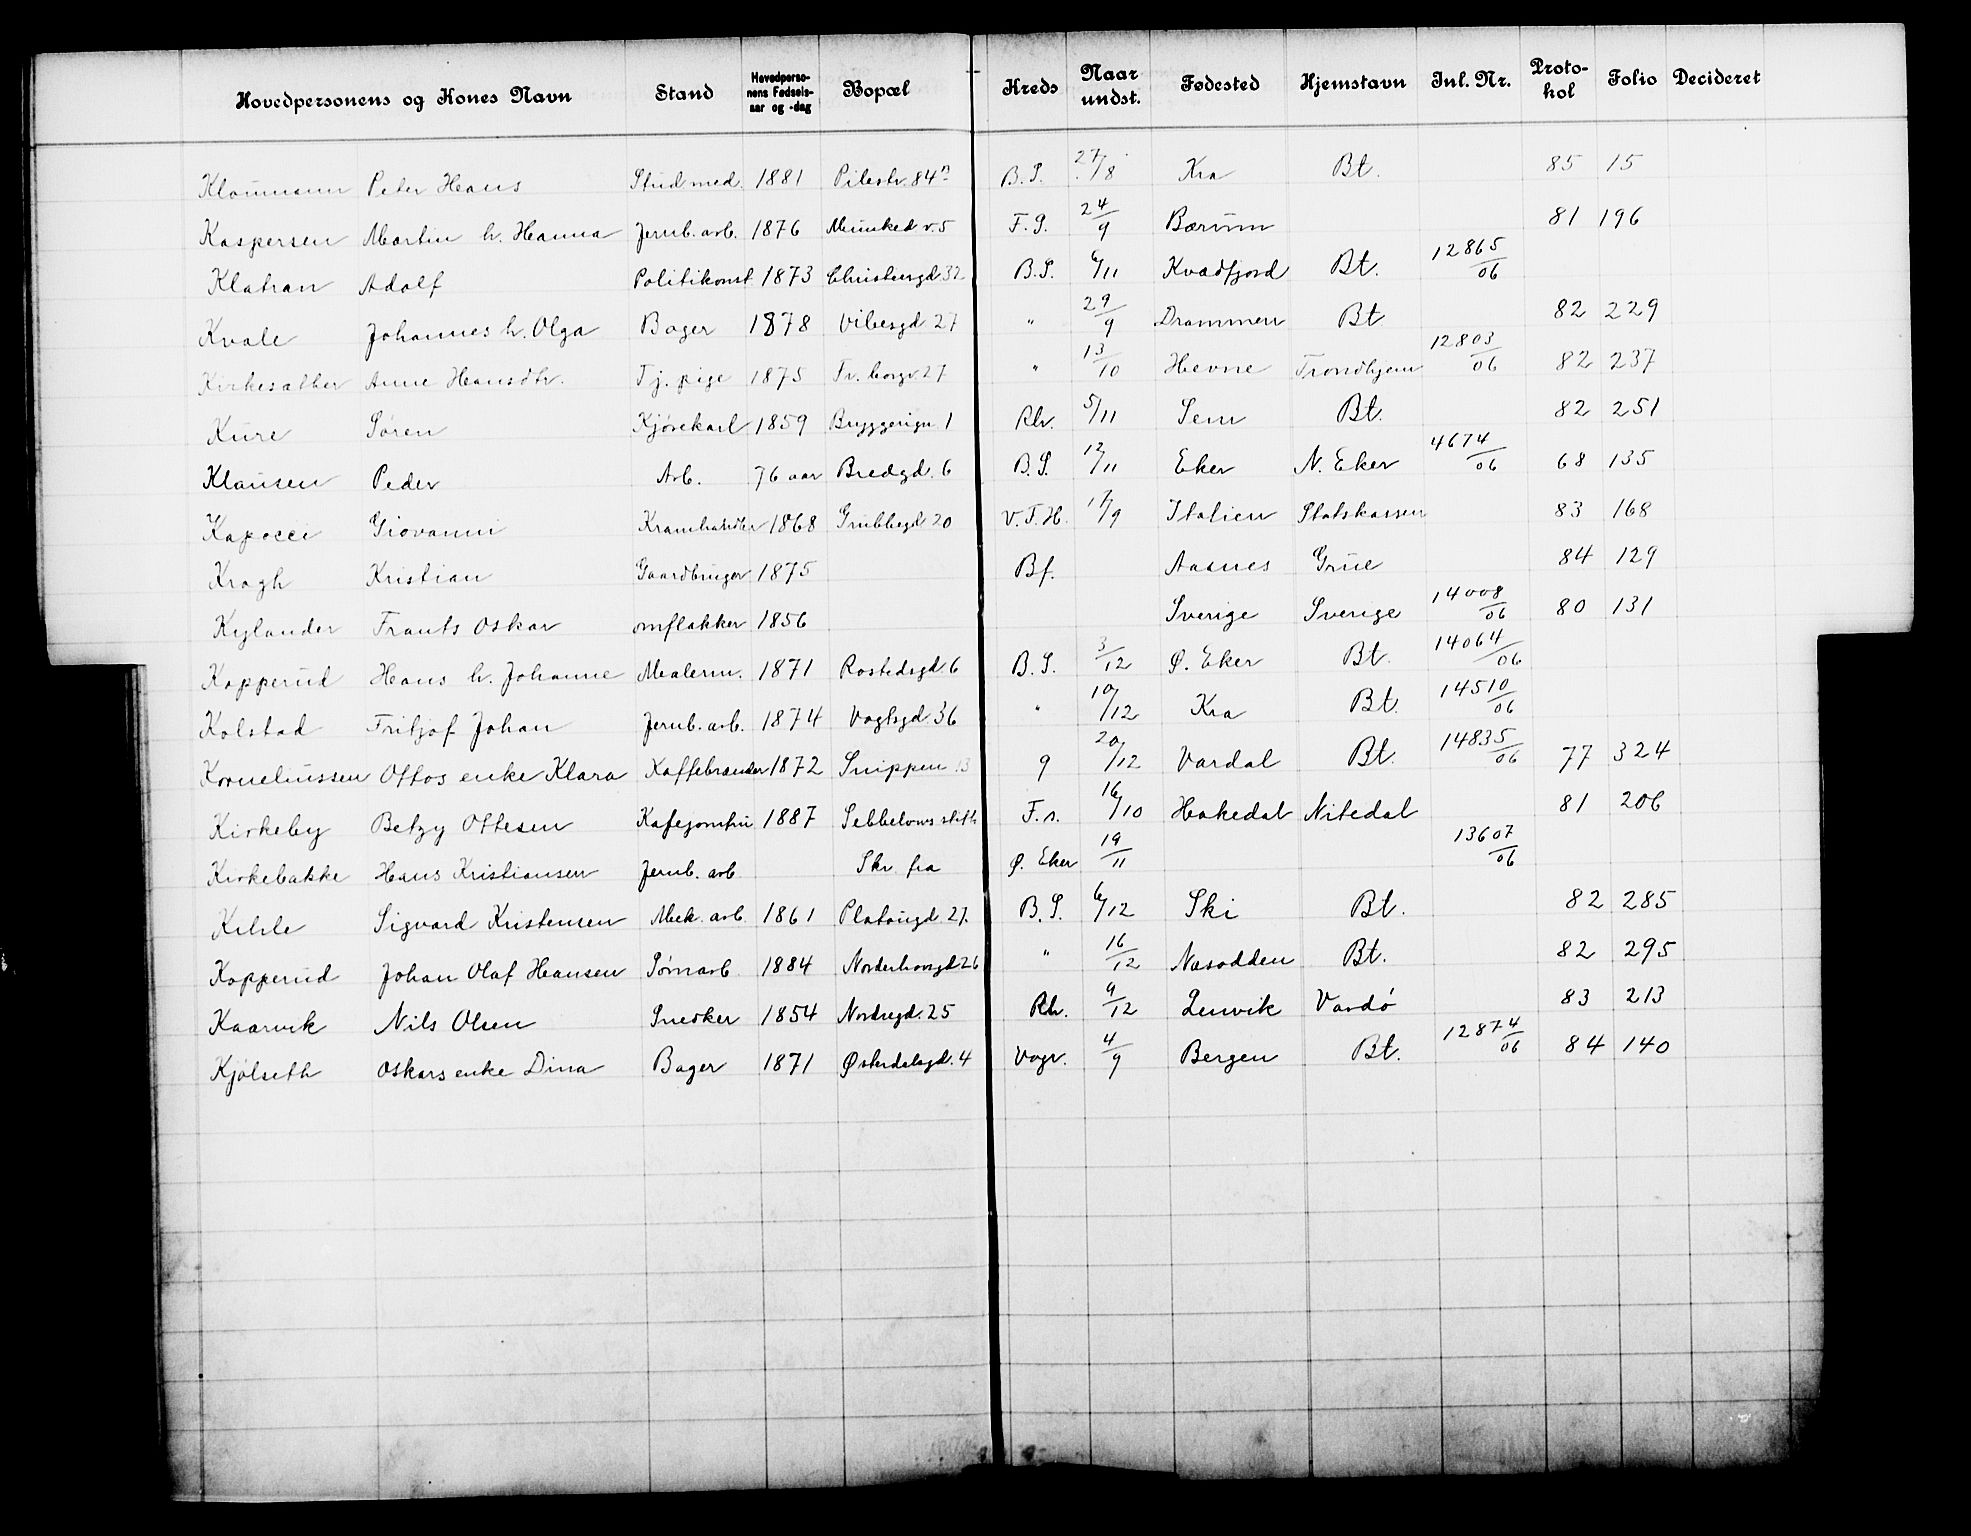 Hovedpersonens og Kones Navn Stand Hovedpersonens Fødselsaar og -dag Bopæl Kreds Naar undst. Fødested Hjemstavn Inl. Nr. Protokol Folio Decideret
Peter Hans Stud med. 1881 Pilestr. 84 B.S. 27/8 Kra Bt. 85 15
Kaspersen Martin h. Hanna Jernb. arb. 1876 Munked v. 5 F.S. 24/9 Bærum 81 196
Klatran Adolf Politikonst 1873 Christensgd 32 B.S. 6/11 Kvædfjord Bt. 12865/06
Kvale Johannes h. Olga Bager 1878 Vibesgd 27 " 29/9 Drammen Bt 82 229
Kirkesæther Anne Hansdtr. Tj. pige 1875 Tr. borgv. 27 " 13/10 Hevne Trondhjem 12803/06 82 237
Kure Søren Kjørekarl 1859 Bryggerign 1 Rh. 5/11 Sem Bt. 82 251
Klausen Peder Arb. 76 aar Bredgd. 6 B.S. 12/11 Eker N. Eker 4674/06 68 135
Kapocci Giovanni Kramhandler 1868 Grubbegd 20 V.F.H. 17/9 Italien Statskassen 83 168
Kragh Kristian Gaardbruger 1875 Bf. Aasnes Grue 84 129
Kylander Frants Oskar omflakker 1856 Sverige Sverige 14008/06 80 131
Kopperud Hans h. Johanne Malerm. 1871 Rostedsgd 6 B.S. 3/12 Ø. Eker Bt. 14064/06
Kolstad Fritjof Johan Jernb. arb. 1874 Vogtsgd. 36 " 10/12 Kra Bt. 14510/06
Korneliussen Ottos enke Klara Kaffebrænder 1872 Snippen 13 9 20/12 Vardal Bt. 14835/06 77 324
Kirkeby Betzy Ottesen Kafejomfru 1887 Sebbelows stift. F.n. 16/10 Hakedal Nitedal 81 206
Kirkebakke Hans Kristiansen Jernb. arb Skr. fra Ø. Eker 19/11 13607/06
Kihle Sigvard Kristensen Mek. arb. 1861 Platougd. 27. B.S. 6/12 Ski Bt. 82 285
Kopperud Johan Olaf Hansen Sømarb. 1884 Norderhovgd 26 " 16/12 Næsodden Bt. 82 295
Kaarvik Nils Olsen Snedker 1854 Nordregd. 25 Rh. 9/12 Lenvik Vardø 83 213
Kjølseth Oskars enke Dina Bager 1871 Østerdalsgd. 4 Vogv. 4/9 Bergen Bt. 12874/06 84 140